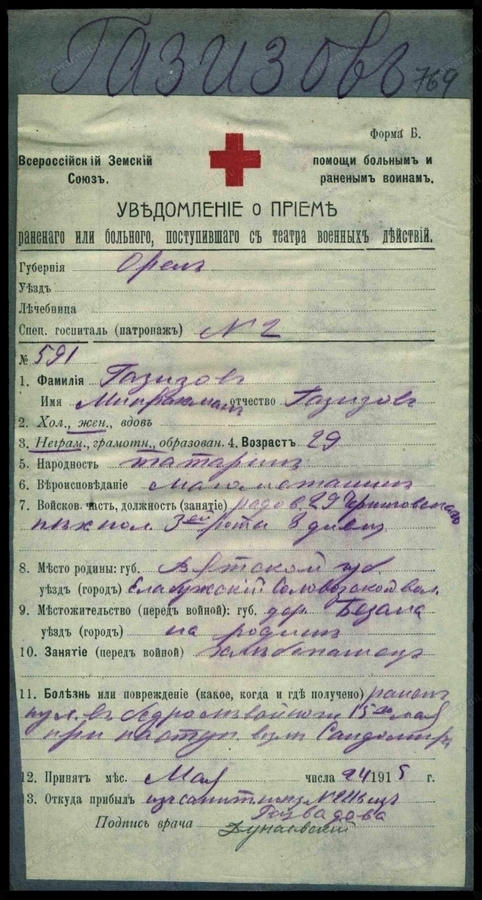 Газизовъ 769
Форма Б.
Всероссійскій Земскій
Союзъ.
помощи больнымъ и
раненымъ воинамъ.
УВѢДОМЛЕНІЕ О ПРІЕМѢ
раненаго или больного, поступившаго съ театра военныхъ дѣйствій.
Губернія Орелъ
Уѣздъ
Лѣчебница
Спец. госпиталь (патронажъ) № 2
№ 591
1. Фамилія Газизовъ
Имя отчество Газизовъ
2. Хол., жен., вдовъ
3. Неграм., грамотн., образован. 4. Возрастъ 29
5. Народность татаринъ
6. Вѣроисповѣданіе
7. Войсков. часть, должность (занятіе) рядов. 29 Черниговскаго
пѣх. пол. 3ей роты 8
8. Мѣсто родины: губ. Вятской губ.
уѣздъ (городъ) Елабужскій вол.
9. Мѣстожительство (передъ войной): губ. дер.
уѣздъ (городъ) на родинѣ
10. Занятіе (передъ войной)
11. Болѣзнь или поврежденіе (какое, когда и гдѣ получено) раненъ
пул. въ 15го мая
при наступ. Сандомир
12. Принятъ мѣс. Мая числа 24 1915 г.
13. Откуда прибылъ
Развадова
Подпись врача Дунаевскій